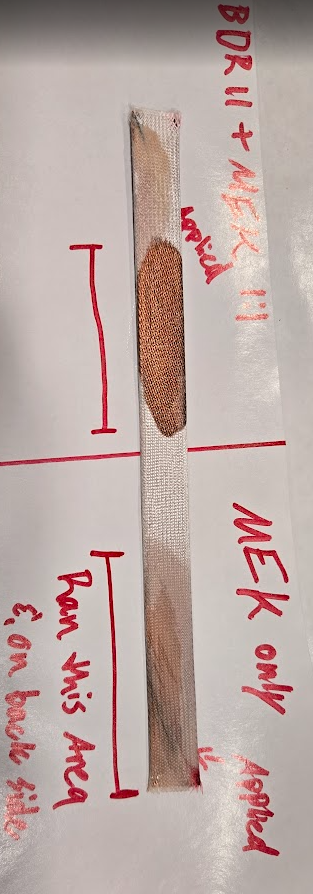 BDR 11 + MEK 1:1
Applied
MEK only
Applied
Ran this Area
& on back side